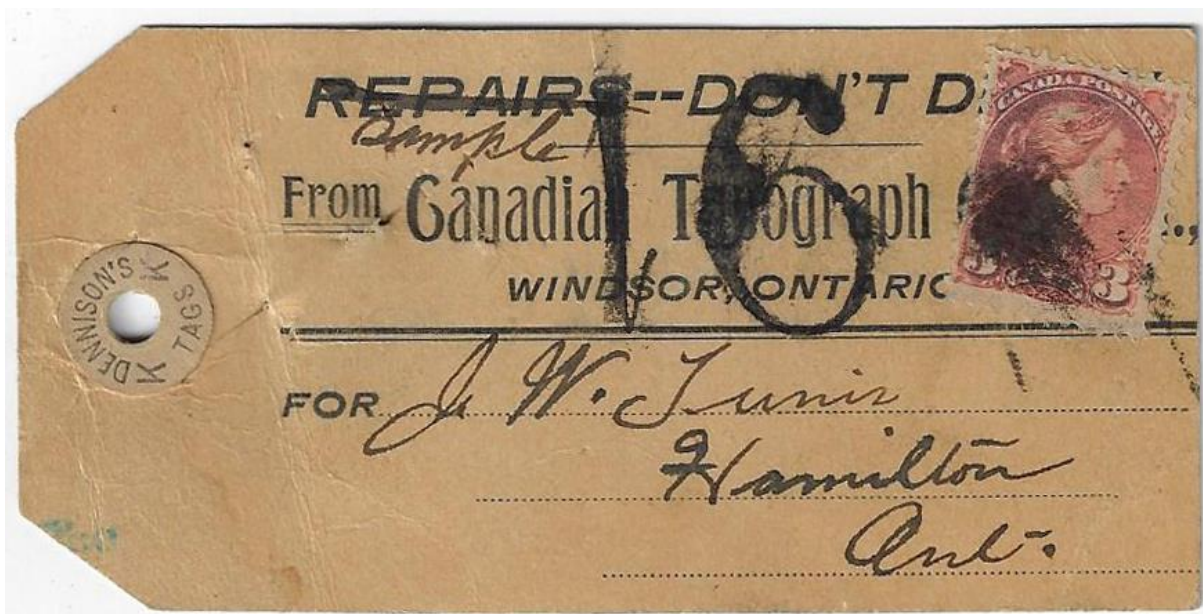 REPAIRS--DON'T D
Sample
16
From Canadian Typograph
WINDSOR, ONTARIO
CANADA POSTAGE
3 3
DENNISON'S
TAGS
K K
FOR J. W. Tunis
Hamilton
Ont.